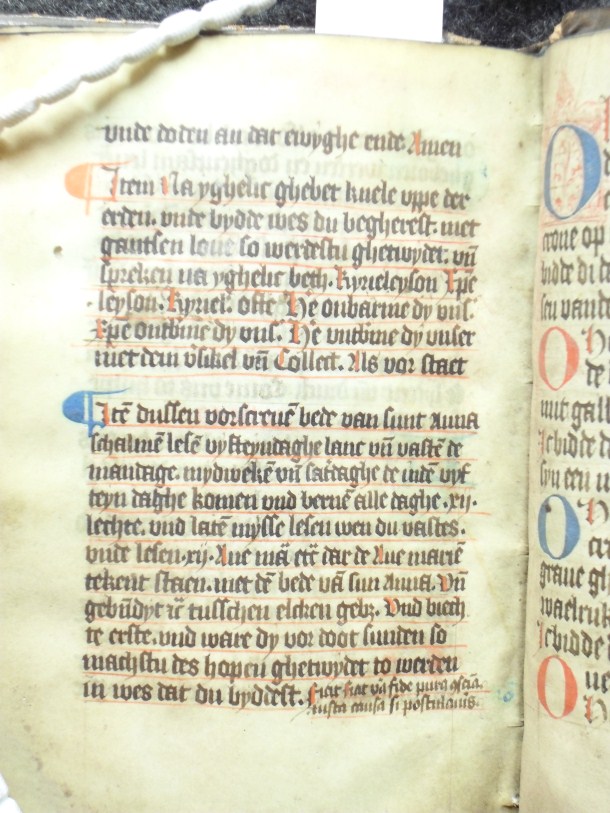 vnde doden an dat ewyghe ende Amen
Jtem Na yghelic ghebet knele vppe der
erden. vnde bydde wes du begherest. met
gantsen loue so werdestu ghetwydet. vñ
spreken na yghelic beth. Kyrieleyson Xpe
leyson. Kyriel. ofte He onbarme dy vns.
xpe ontb̄me dy vns. He vntb̄me dy vnser
met dem v̄sikel vñ Collect. Als vor staet
Jtē dussen vorscreuē bede van sunt Anna
schalmē lesē vyfteyndaghe lanc vñ vastē de
mandage. mydwekē vñ sat̄daghe de indē vyf
teyn daghe komen vnd bernē alle daghe .xij.
lechte. vnd latē mysse lesen wen du vastes.
vnde lesen .xij. Aue mā etc̄ dar de Aue mariē
tekent staen. met dē bede vā sun Anna. Vñ
gebēdyt ic̄ tusschen elcken gebz. Vnd biech
te erste. vnd ware dy vor doot sunden so
machstu des hopen ghetwydet to werden
in wes dat du byddest. Fiat fiat
iusta causa si postulauis.
O
croue op
bidde di d
seu vande
O
mit gall
O
graue gh
O